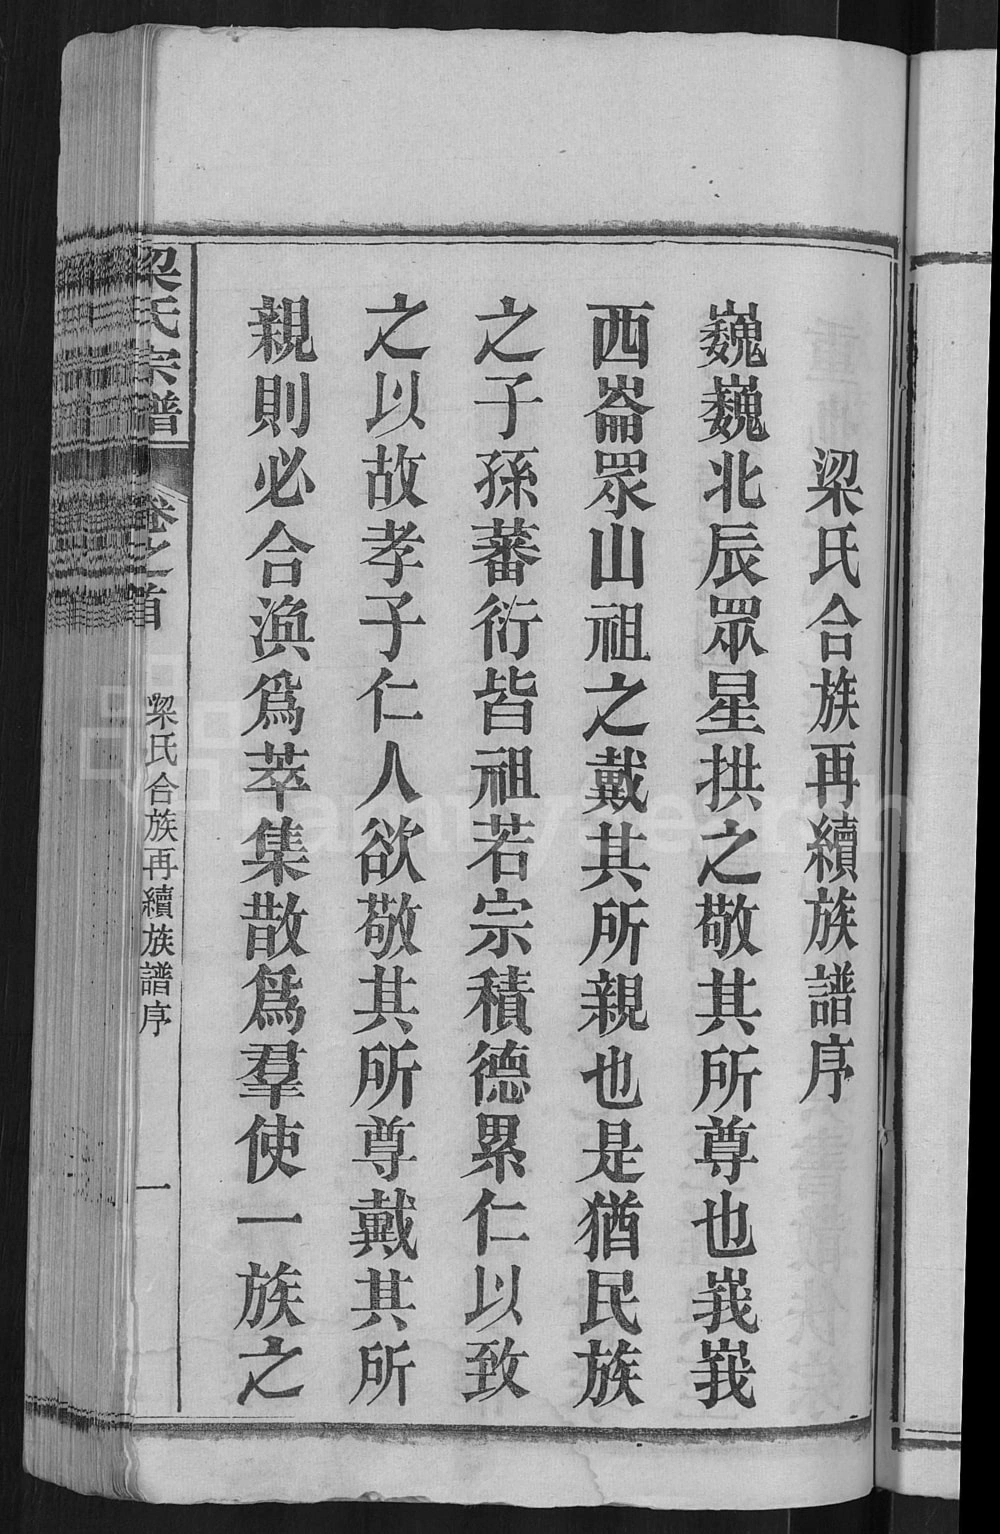 梁氏合族再續族譜序
巍巍北辰眾星拱之敬其所尊也峩峩
西崙眾山祖之戴其所親也是猶民族
之子孫蕃衍皆祖若宗積德累仁以致
之以故孝子仁人欲敬其所尊戴其所
親則必合渙爲萃集散爲羣使一族之
梁氏宗譜 卷之首 梁氏合族再續族譜序 一